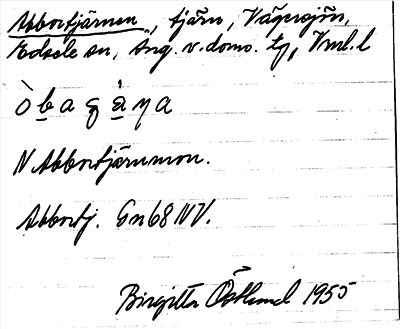 Abbortjärnen, tjärn, Vägersjön,
Edsele sn, Ång. v. doms. tj, Vml. l
N Abbortjärnmon.
Abbortj. Gn68 NV.
Birgitta Östlund 1955